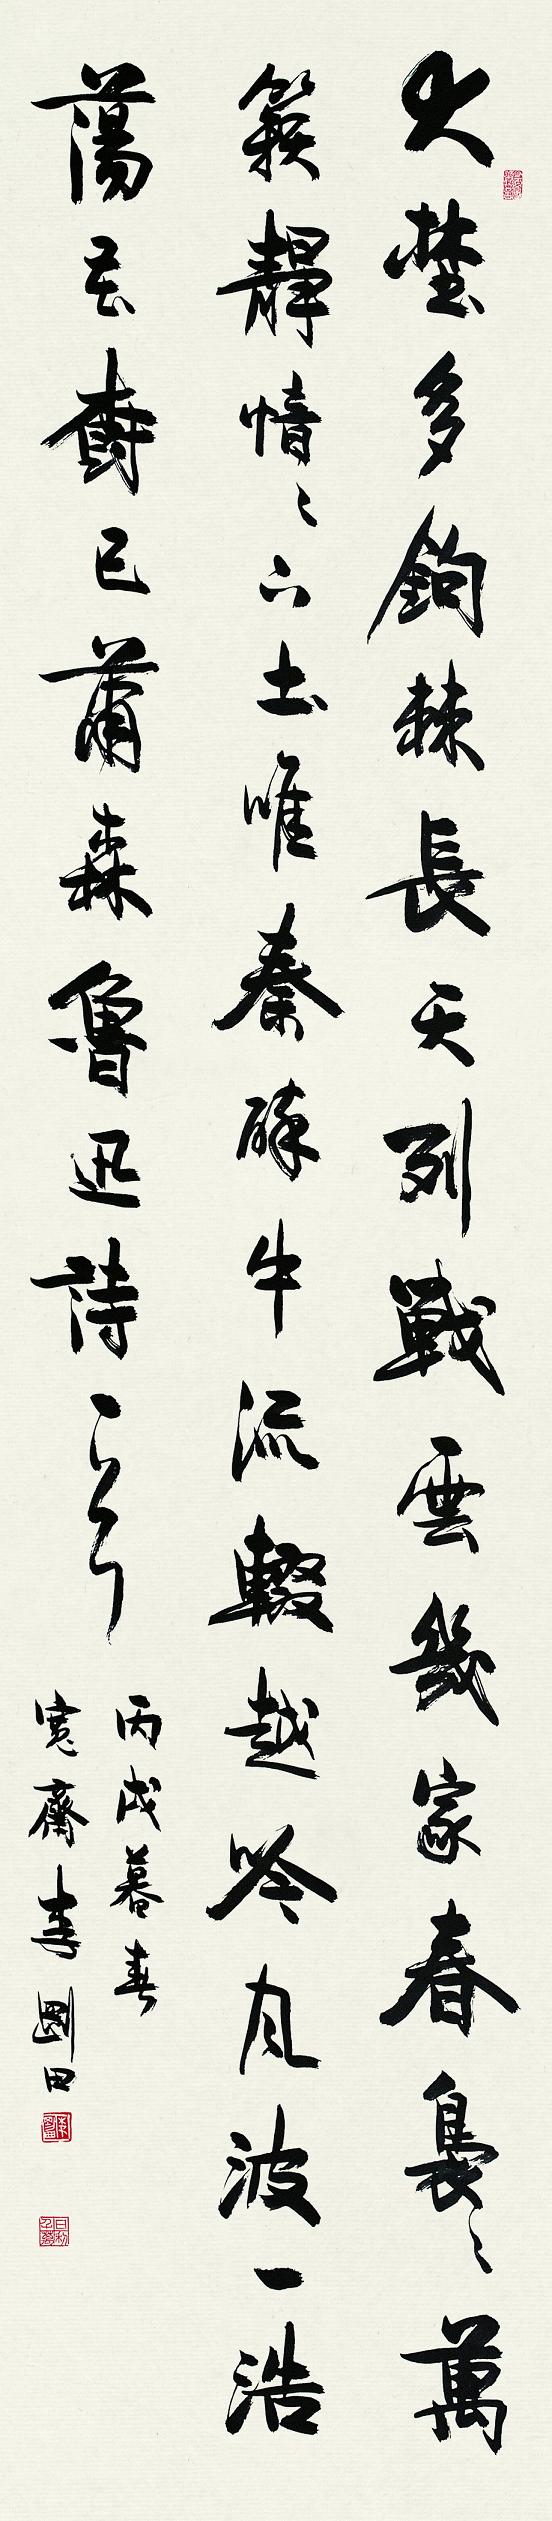 大埜多鉤棘長天列戰雲幾家春裊〻萬
籟靜愔〻下土唯秦醉中流輟越吟風波一浩
蕩花樹已蕭森魯迅詩一首
丙戌暮春
寬齋李剛田